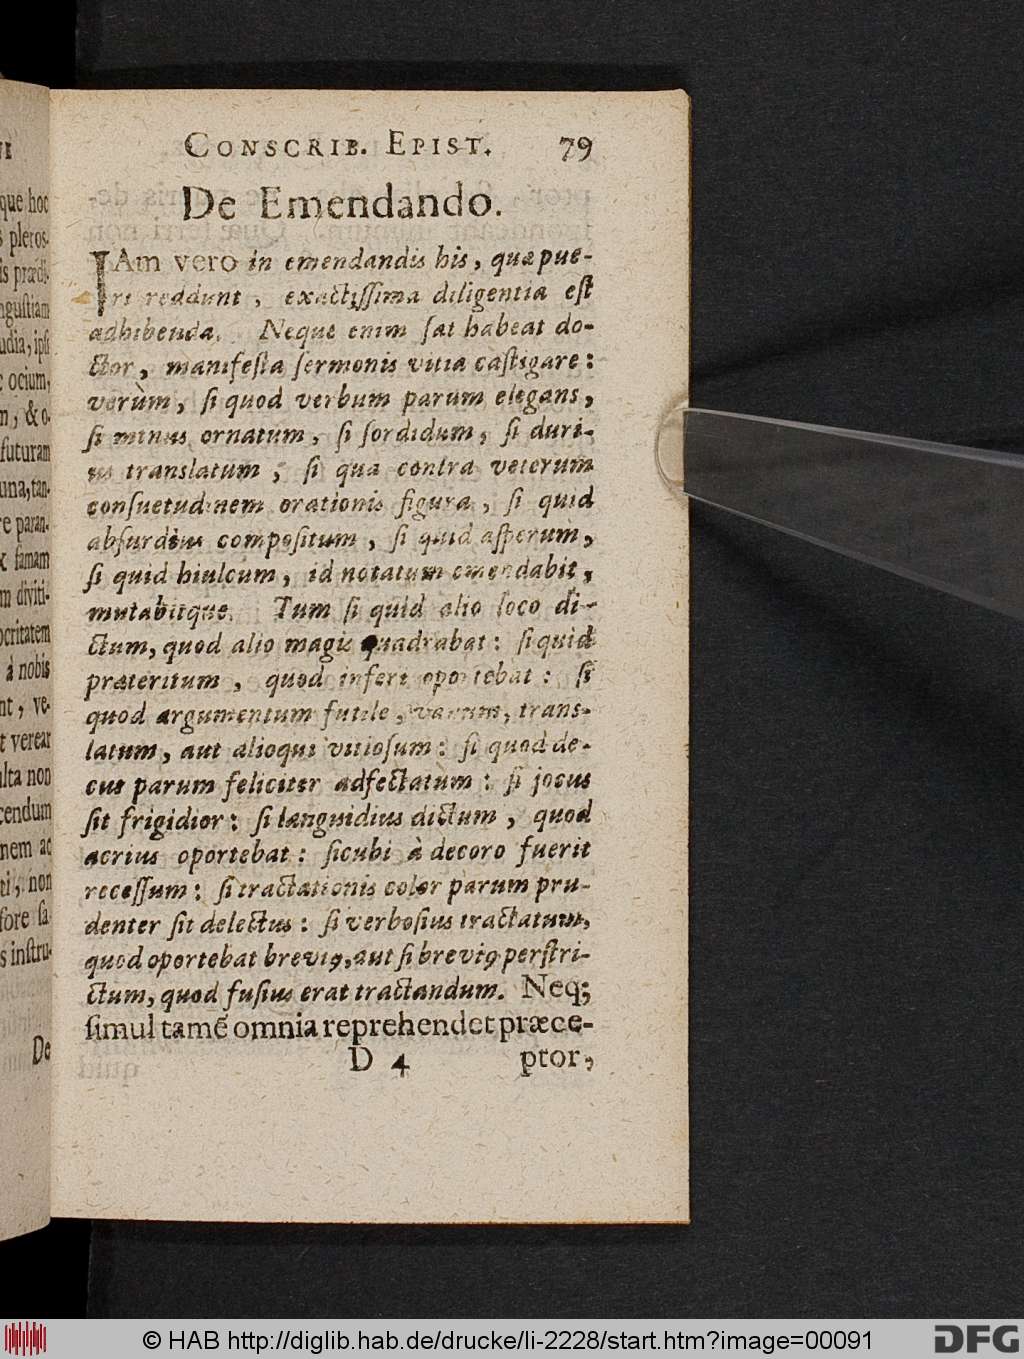 CONSCRIB. EPIST. 79
De Emendando.
IAm vero in emendandis his, quæ pue-
ri reddunt, exactissima diligentia est
adhibenda. Neque enim sat habeat do-
ctor, manifesta sermonis vitia castigare:
verùm, si quod verbum parum elegans,
si minus ornatum, si sordidum, si duri-
us translatum, si qua contra veterum
consuetudinem orationis figura, si quid
absurdius compositum, si quid asperum,
si quid hiulcum, id notatum emendabit,
mutabitque. Tum si quid alio loco di-
ctum, quod alio magis quadrabat: si quid
præteritum, quod inferi oportebat: si
quod argumentum futile, vanum, trans-
latum, aut alioqui vitiosum: si quod de-
cus parum feliciter adfectatum: si jocus
sit frigidior: si languidius dictum, quod
acrius oportebat: sicubi à decoro fuerit
recessum: si tractationis color parum pru-
denter sit delectus: si verbosius tractatum,
quod oportebat brevi9, aut si brevi9 perstri-
ctum, quod fusius erat tractandum. Neq;
simul tamē omnia reprehendet præce-
D 4 ptor,
que hoc
pleros-
is prædi-
ngustiam
udia, ipsi
ocium,
m, & o-
futuram
una, tan-
re paran-
famam
m diviti-
ocritatem
à nobis
nt, ve-
t verear
ulta non
cendum
nem ac
ti, non
fore sa-
s instru-
De
© HAB http://diglib.hab.de/drucke/li-2228/start.htm?image=00091
DFG